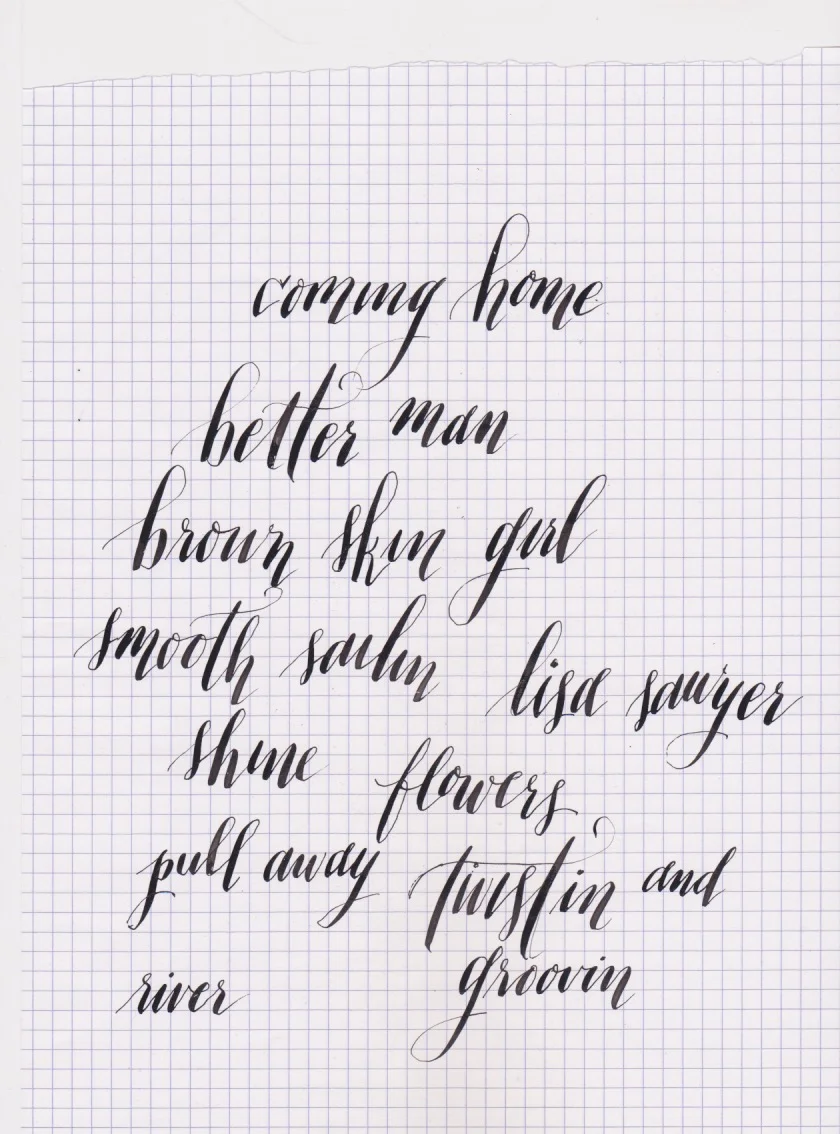 coming home
better man
brown skin girl
smooth sailin
lisa sawyer
shine
flowers
pull away
twistin and
groovin
river